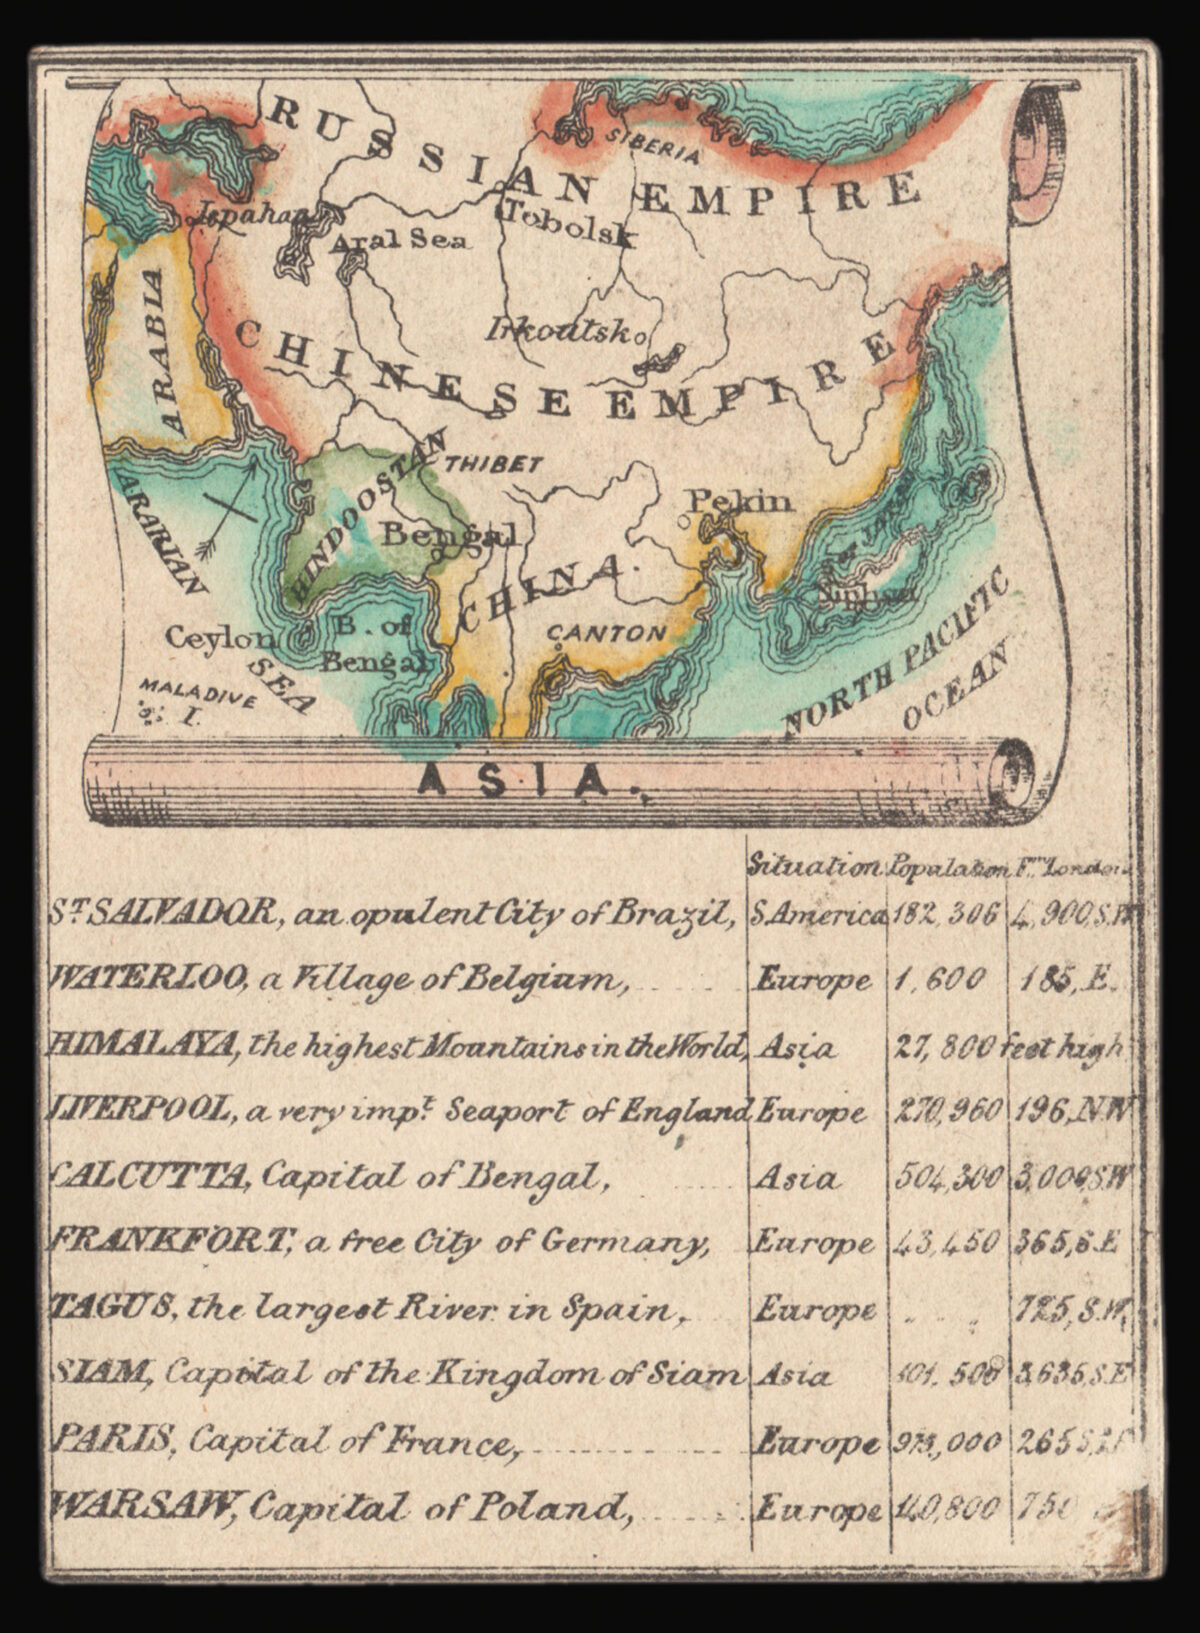 RUSSIAN EMPIRE
SIBERIA
Ispahan
Aral Sea
Tobolsk
ARABIA
Irkoutsk
CHINESE EMPIRE
THIBET
HINDOOSTAN
Bengal
Pekin
ARABIAN
SEA
CHINA.
CANTON
Niphon
Ceylon
B. of
Bengal
MALADIVE
I.
NORTH PACIFIC
OCEAN
ASIA.
Situation Population Fm London
ST SALVADOR, an opulent City of Brazil, S. America 182,306 4,900, S.W
WATERLOO, a Village of Belgium, Europe 1,600 185, E.
HIMALAYA, the highest Mountains in the World, Asia 27,800 feet high
LIVERPOOL, a very impt Seaport of England Europe 270,960 196, N.W
CALCUTTA, Capital of Bengal, Asia 504,300 3,000 S.W
FRANKFORT, a free City of Germany, Europe 43,450 365, S.E
TAGUS, the largest River in Spain, Europe 725, S.W,
SIAM, Capital of the Kingdom of Siam Asia 101,500 3,635, S.E
PARIS, Capital of France, Europe ,000 265
WARSAW, Capital of Poland, Europe 140,800